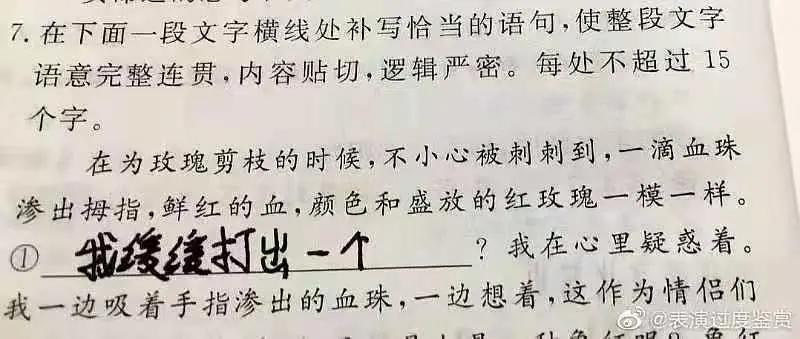 7. 在下面一段文字横线处补写恰当的语句,使整段文字
语意完整连贯,内容贴切,逻辑严密。每处不超过 15
个字。
在为玫瑰剪枝的时候,不小心被刺刺到,一滴血珠
渗出拇指,鲜红的血,颜色和盛放的红玫瑰一模一样。
① 我缓缓打出一个 ? 我在心里疑惑着。
我一边吸着手指渗出的血珠,一边想着,这作为情侣们
@表演过度鉴赏